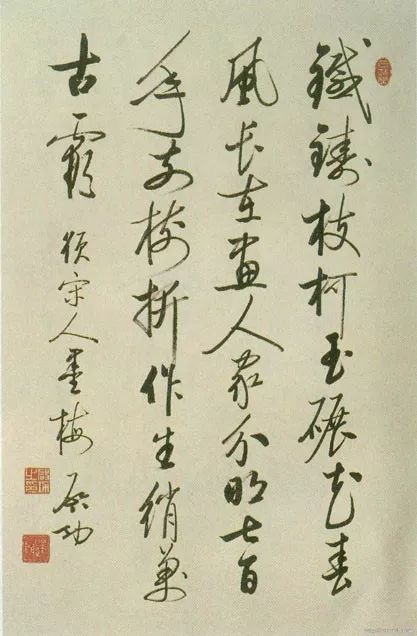 鐵鑄枝柯玉碾花春
風長在畫人家分明七百
年前樹折作生綃萬
古霞 題宋人墨梅 啟功